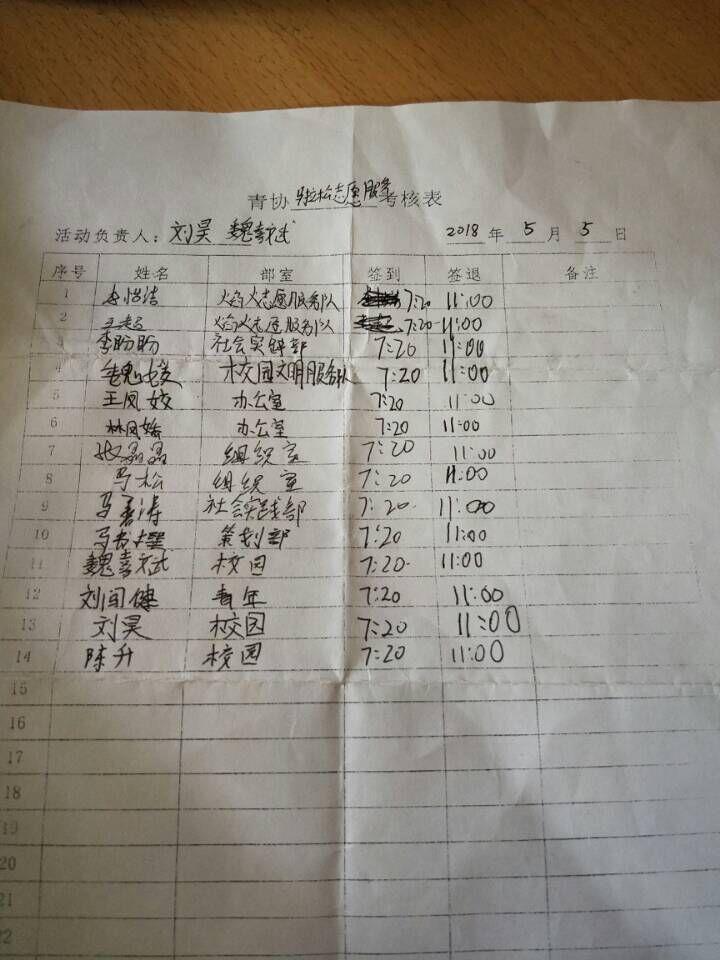 青协马拉松志愿服务考核表
活动负责人：刘昊 魏喜斌 2018 年 5 月 5 日
序号 姓名 部室 签到 签退 备注
1 赵怡洁 火焰火志愿服务队 7:20 11:00
2 火焰火志愿服务队 7:20 11:00
3 李盼盼 社会实践部 7:20 11:00
4 魏媛 校园文明服务队 7:20 11:00
5 王凤姣 办公室 7:20 11:00
6 林凤娇 办公室 7:20 11:00
7 张磊磊 组织室 7:20 11:00
8 马松 组织室 7:20 11:00
9 马春涛 社会实践部 7:20 11:00
10 策划部 7:20 11:00
11 魏喜斌 校园 7:20 11:00
12 刘闯健 青年 7:20 11:00
13 刘昊 校园 7:20 11:00
14 陈升 校园 7:20 11:00
15
16
17
18
19
20
21
22